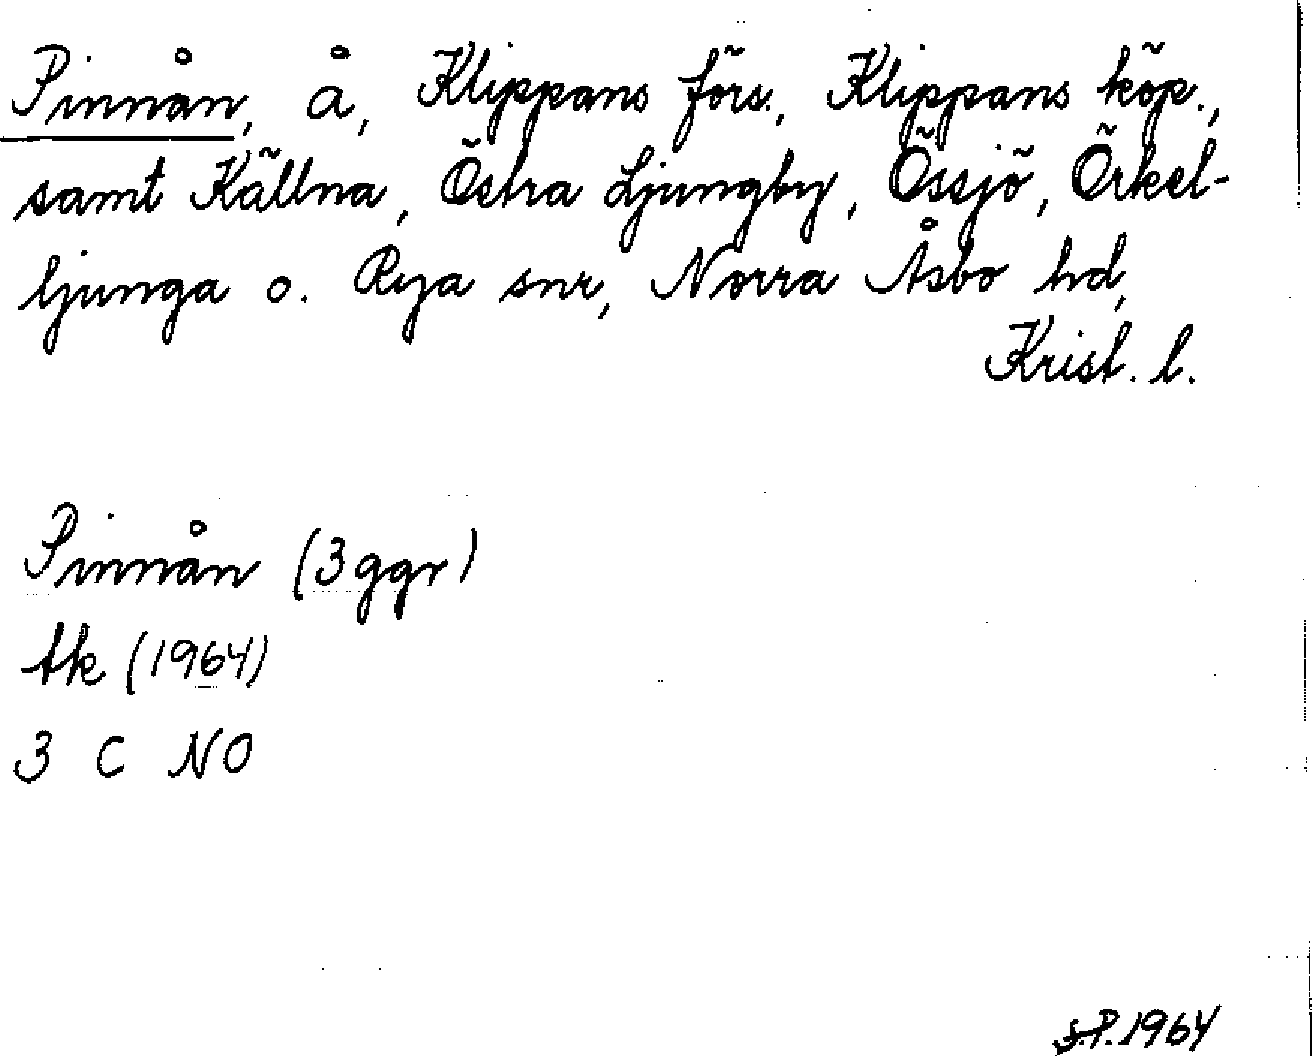 Pinnån, å, Klippans förs., Klippans köp.,
samt Källna, Östra Ljungby, Össjö, Örkel-
ljunga o. Rya snr, Norra Åsbo hd,
Krist. l.
Pinnån (3 ggr)
tk (1964)
3 C NO
S.P. 1964